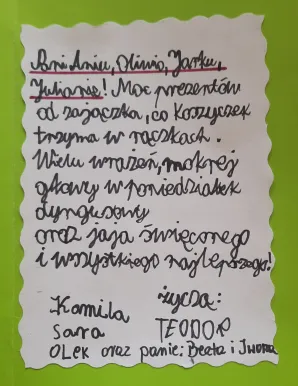 Pani Aniu, Oliwio, Jarku,
Julianie! Moc prezentów
od zajączka, co koszyczek
trzyma w rączkach.
Wielu wrażeń, mokrej
głowy w poniedziałek
dyngusowy
oraz jaja święconego
i wszystkiego najlepszego!
życzą:
Kamila
Sara TEODOR
OLek oraz panie: Beata i Iwona